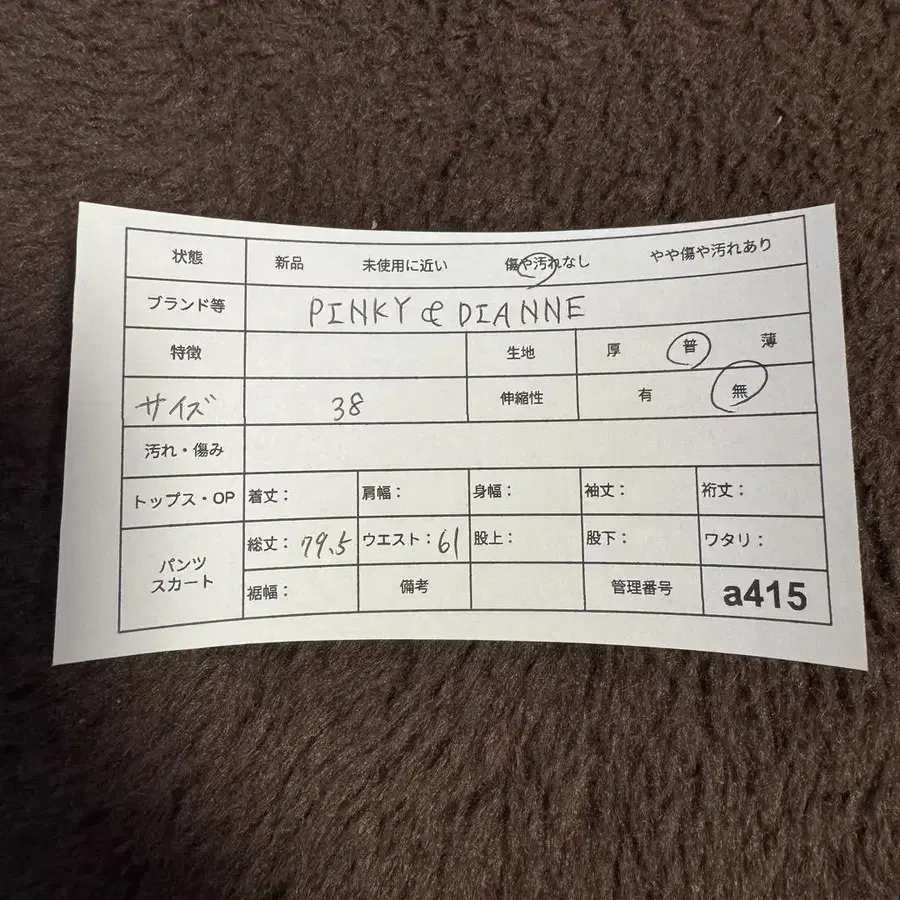 状態 新品 未使用に近い 傷や汚れなし やや傷や汚れあり
ブランド等 PINKY & DIANNE
特徴 生地 厚 普 薄
サイズ 38 伸縮性 有 無
汚れ・傷み
トップス・OP 着丈: 肩幅: 身幅: 袖丈: 裄丈:
パンツ スカート 総丈:79.5 ウエスト:61 股上: 股下: ワタリ:
裾幅: 備考 管理番号 a415